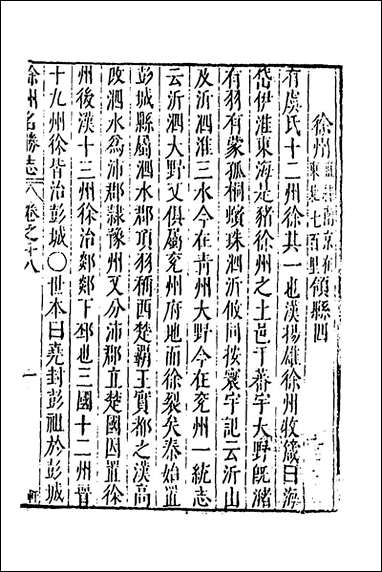 徐州直隸南京在
東北七百里領縣四
有虞氏十二州徐其一也漢揚雄徐州收箴曰海
岱伊淮東海是豬徐州之土邑于蕃宇大野旣瀦
有羽有蒙孤桐蠙珠泗沂攸同按寰宇記云沂山
及沂泗淮三水今在青州大野今在兖州一統志
云沂泗大野又俱屬兖州府地而徐裂矣秦始置
彭城縣屬泗水郡項羽稱西楚霸王實都之漢高
改泗水為沛郡隸豫州又分沛郡立楚國因置徐
州後漢十三州徐治郯郯下邳也三國十二州晉
十九州徐皆治彭城〇世本曰堯封彭祖於彭城
徐州名勝志 卷之十八 一